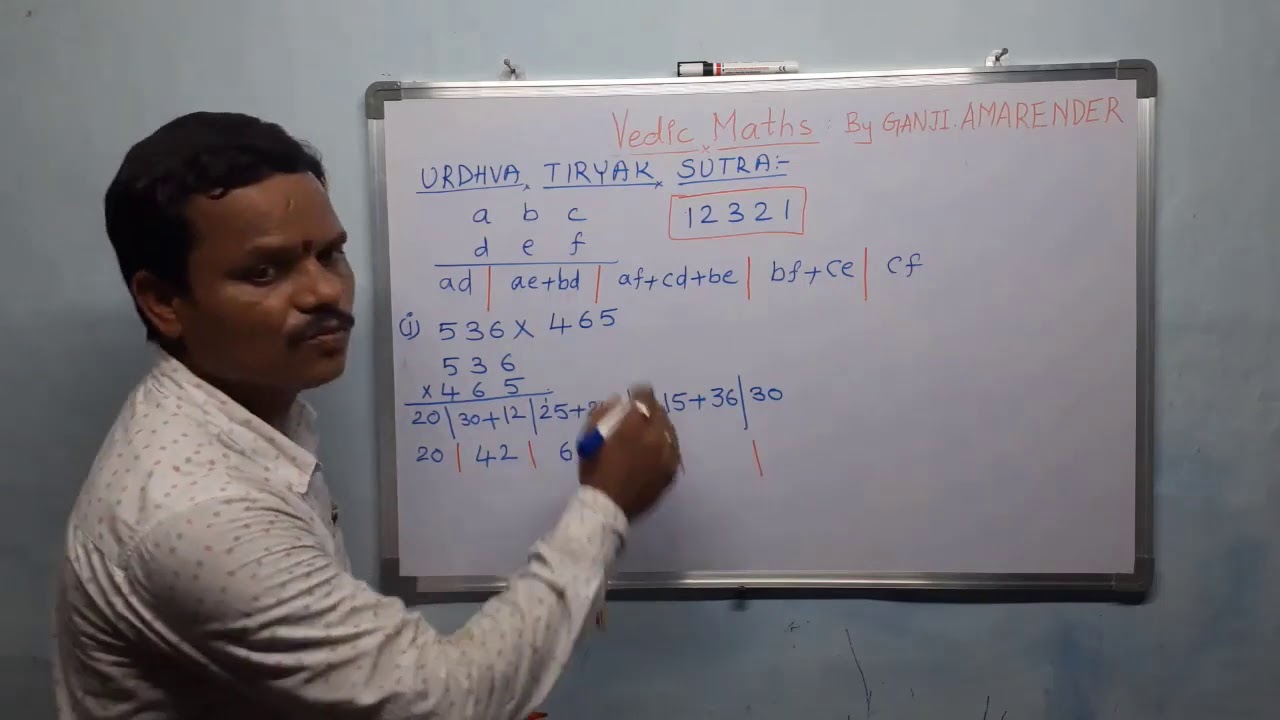 Vedic Maths : By GANJI. AMARENDER
URDHVA TIRYAK SUTRA:-
a b c
12321
d e f
ad | ae+bd | af+cd+be | bf+ce | cf
(i) 536 X 465
536
X 465
20 | 30+12 | 25+ 15+36 | 30
20 | 42 | 6 |